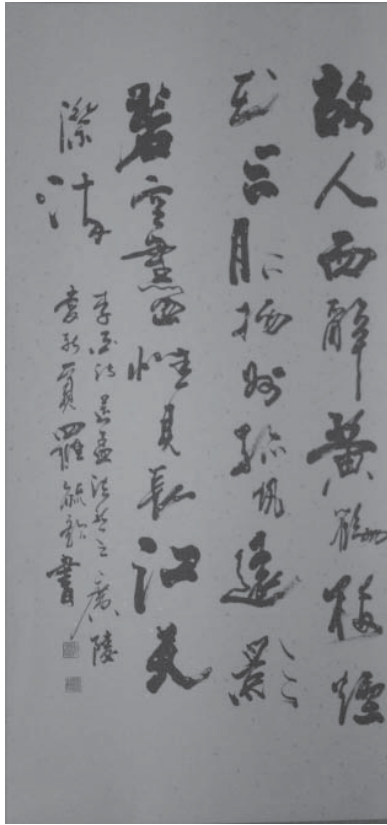 故人西辭黃鶴樓煙
花三月下揚州孤帆遠影
碧空盡惟見長江天
際流
李白詩送孟浩然之廣陵
羅毓書